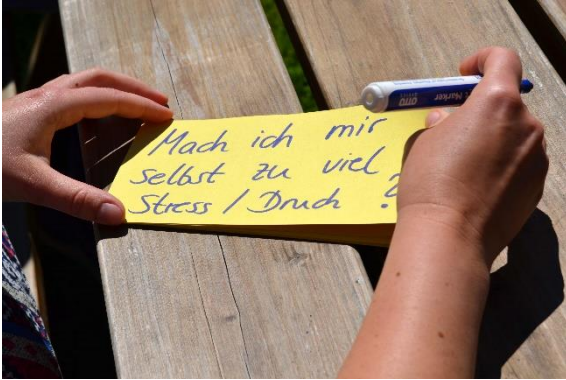 Mach ich mir
selbst zu viel
Stress / Druck ?
OTTO
Marker